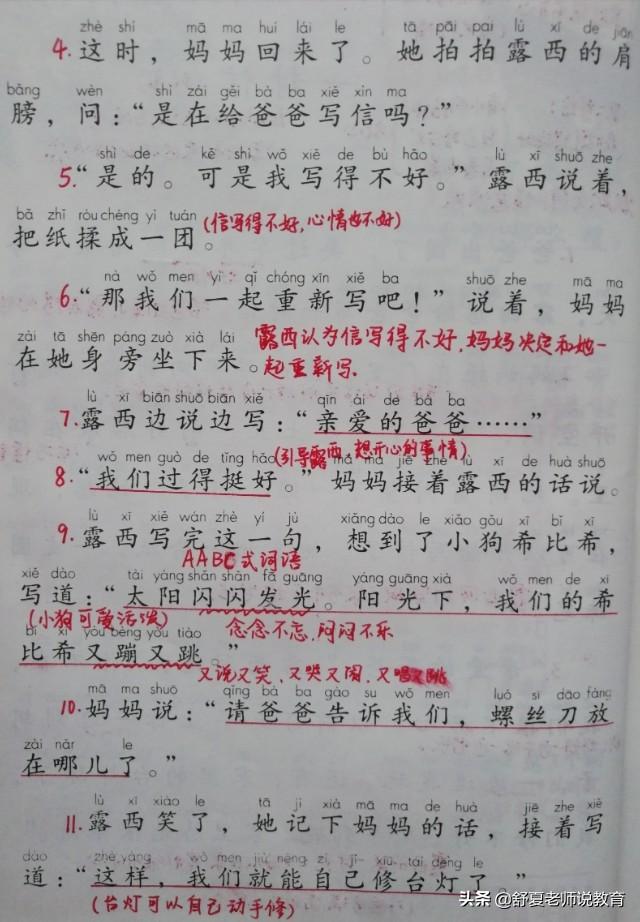 zhè shí mā ma huí lái le tā pāi pai lù xī de jiān
4. 这时，妈妈回来了。她拍拍露西的肩
bǎng wèn shì zài gěi bà ba xiě xìn ma
膀，问：“是在给爸爸写信吗？”
shì de kě shì wǒ xiě de bù hǎo lù xī shuō zhe
5. “是的。可是我写得不好。”露西说着，
bǎ zhǐ róu chéng yì tuán
把纸揉成一团。(信写得不好,心情也不好)
nà wǒ men yì qǐ chóng xīn xiě ba shuō zhe mā ma
6. “那我们一起重新写吧！”说着，妈妈
zài tā shēn páng zuò xià lái
在她身旁坐下来。露西认为信写得不好,妈妈决定和她一
起重新写.
lù xī biān shuō biān xiě qīn ài de bà ba
7. 露西边说边写：“亲爱的爸爸……”
wǒ men guò de tǐng hǎo (引导露西,想开心的事情) mā ma jiē zhe lù xī de huà shuō
8. “我们过得挺好。”妈妈接着露西的话说。
lù xī xiě wán zhè yí jù xiǎng dào le xiǎo gǒu xī bǐ xī
9. 露西写完这一句，想到了小狗希比希，
AABC式词语
xiě dào tài yáng shǎn shǎn fā guāng yáng guāng xià wǒ men de xī
写道：“太阳闪闪发光。阳光下，我们的希
(小狗可爱活泼) 念念不忘,闷闷不乐
bǐ xī yòu bèng yòu tiào
比希又蹦又跳。”
又说又笑,又哭又闹,又唱又跳
mā ma shuō qǐng bà ba gào su wǒ men luó sī dāo fàng
10. 妈妈说：“请爸爸告诉我们，螺丝刀放
zài nǎr le
在哪儿了。”
lù xī xiào le tā jì xià mā ma de huà jiē zhe xiě
11. 露西笑了，她记下妈妈的话，接着写
dào zhè yàng wǒ men jiù néng zì jǐ xiū tái dēng le
道：“这样，我们就能自己修台灯了。”
(台灯可以自己动手修)
头条 @舒夏老师说教育